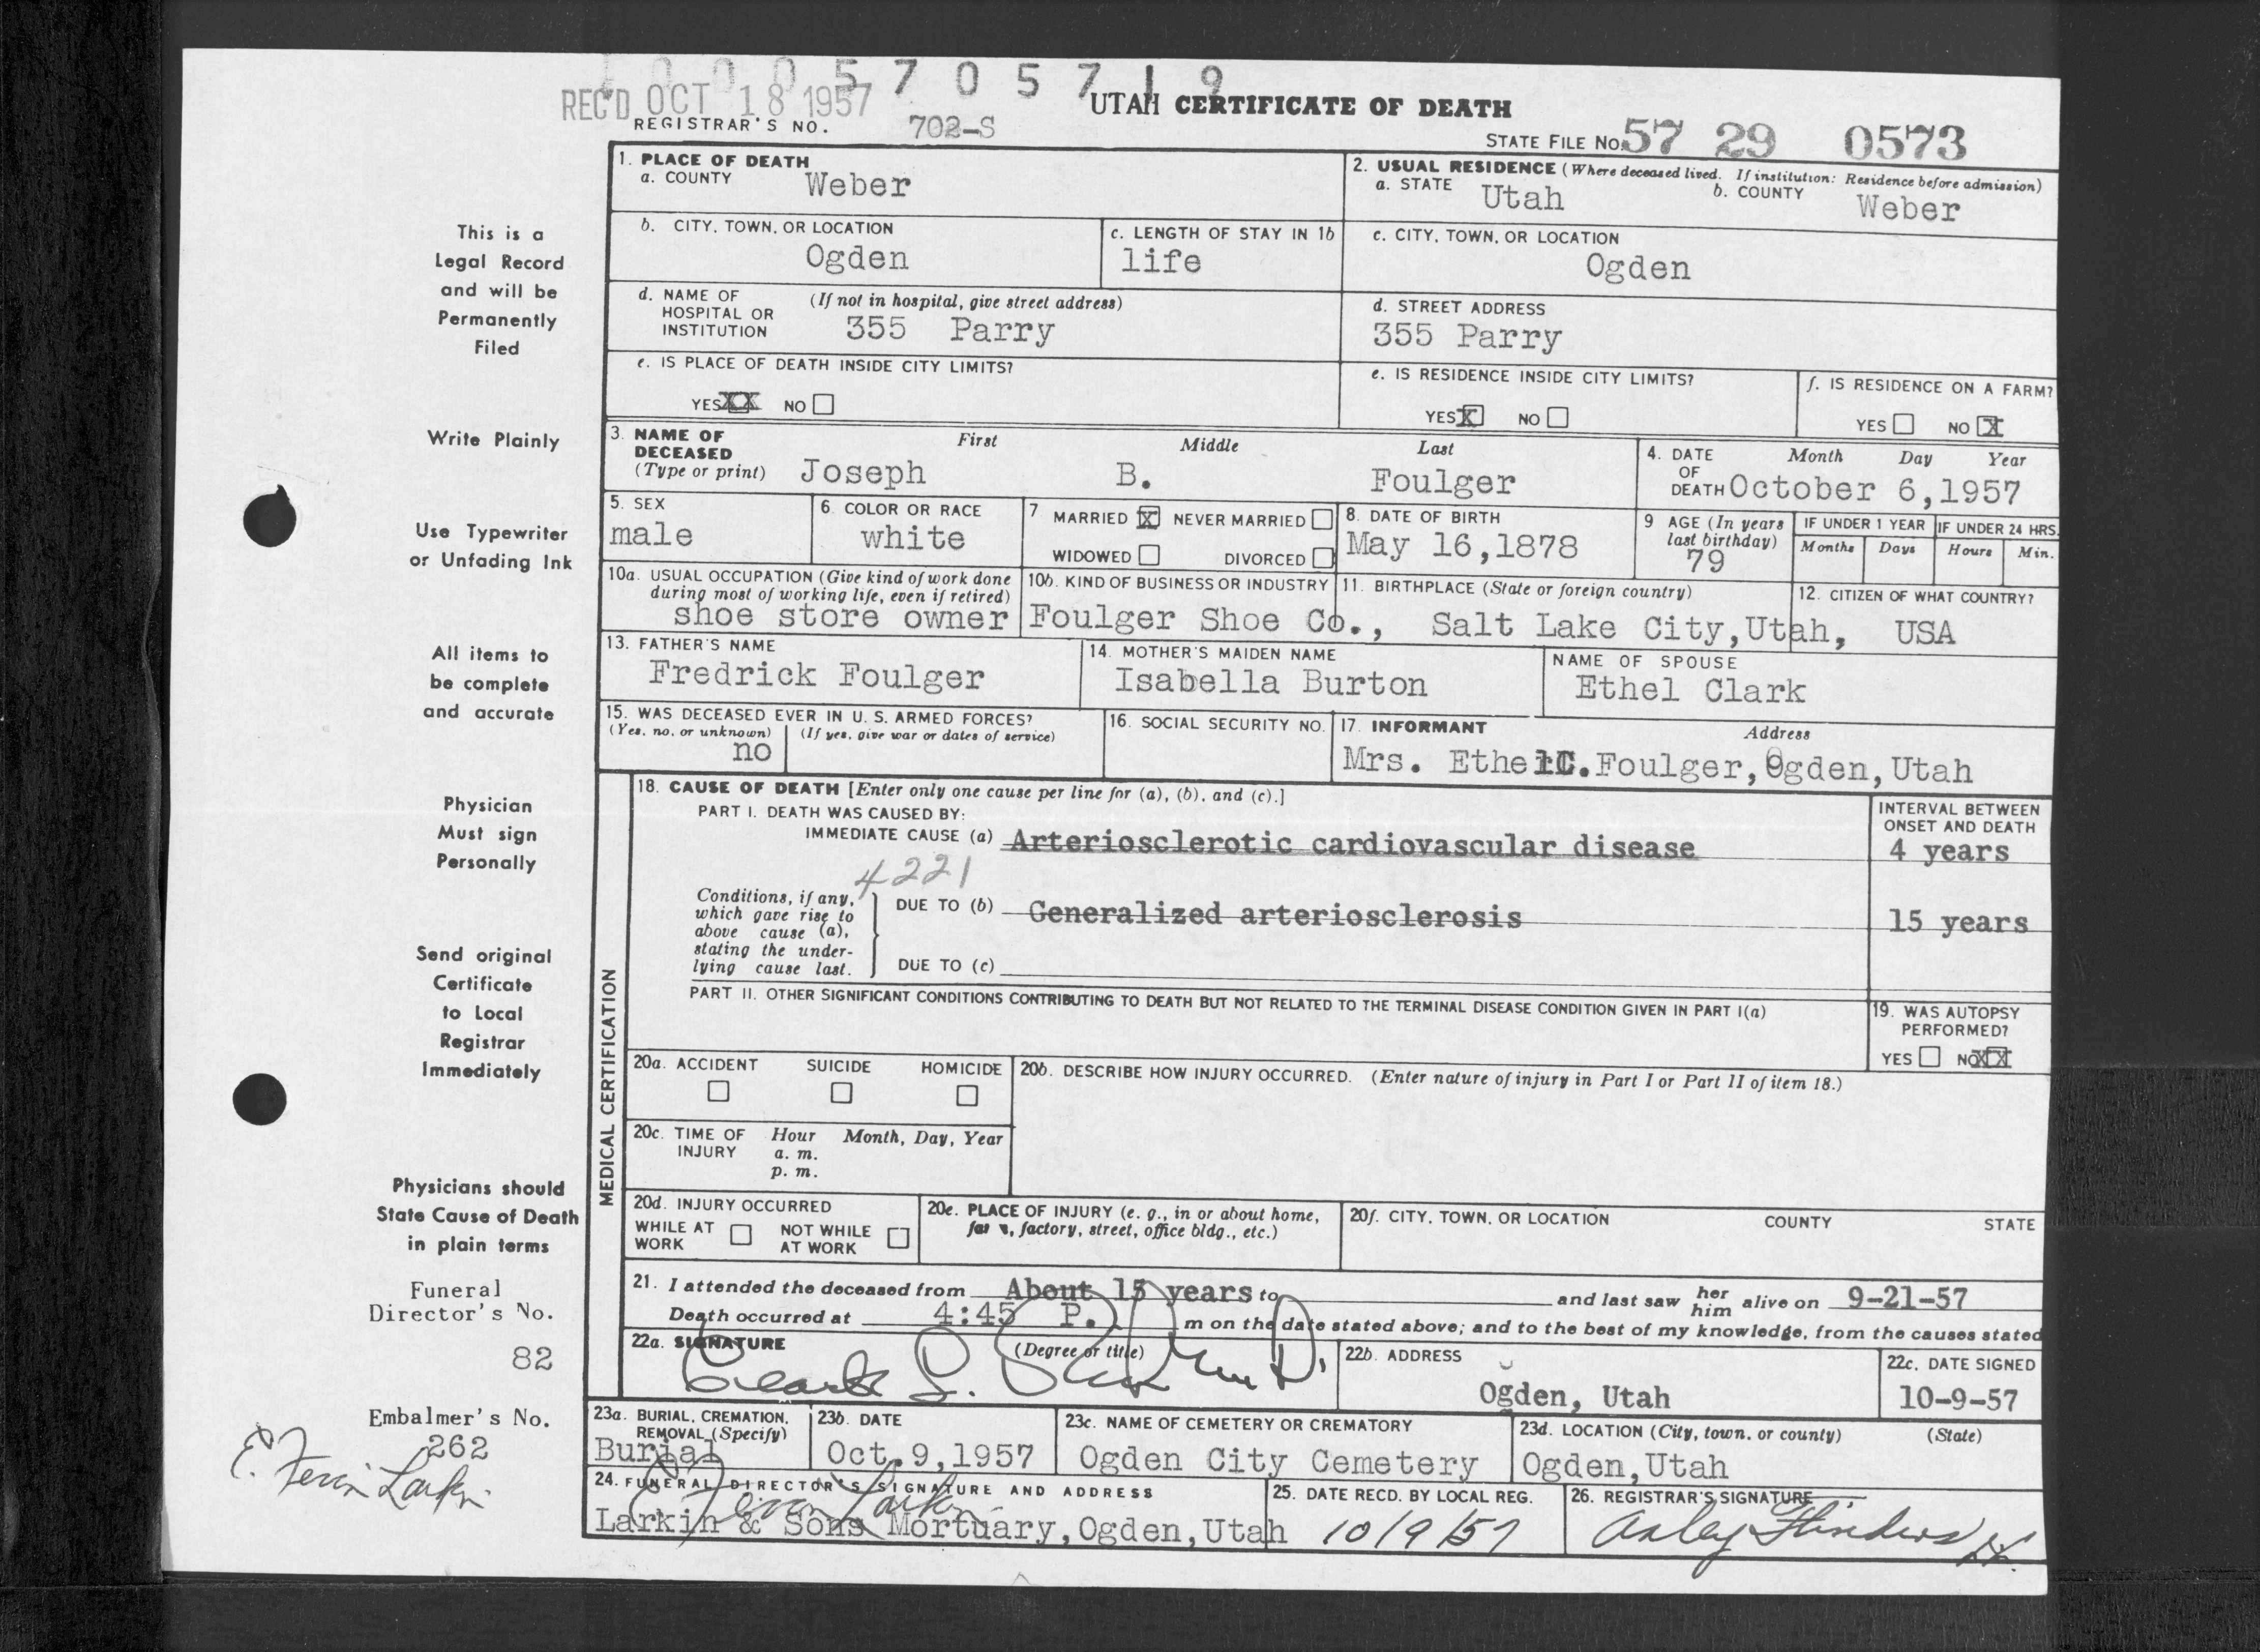 1 0 0 0 5 7 0 5 7 1 9
REC'D OCT 18 1957
UTAH CERTIFICATE OF DEATH
REGISTRAR'S NO. 702-S
STATE FILE NO. 57 29 0573
This is a
Legal Record
and will be
Permanently
Filed
Write Plainly
Use Typewriter
or Unfading Ink
All items to
be complete
and accurate
Physician
Must sign
Personally
Send original
Certificate
to Local
Registrar
Immediately
Physicians should
State Cause of Death
in plain terms
Funeral
Director's No.
82
Embalmer's No.
262
Larkin
1. PLACE OF DEATH
a. COUNTY Weber
2. USUAL RESIDENCE (Where deceased lived. If institution: Residence before admission)
a. STATE Utah b. COUNTY Weber
b. CITY, TOWN, OR LOCATION
Ogden
c. LENGTH OF STAY IN 1b
life
c. CITY, TOWN, OR LOCATION
Ogden
d. NAME OF HOSPITAL OR INSTITUTION (If not in hospital, give street address)
355 Parry
d. STREET ADDRESS
355 Parry
e. IS PLACE OF DEATH INSIDE CITY LIMITS?
YES XX NO
e. IS RESIDENCE INSIDE CITY LIMITS?
YES X NO
f. IS RESIDENCE ON A FARM?
YES NO X
3. NAME OF DECEASED (Type or print) First Middle Last
Joseph B. Foulger
4. DATE OF DEATH Month Day Year
October 6,1957
5. SEX
male
6. COLOR OR RACE
white
7 MARRIED X NEVER MARRIED
WIDOWED DIVORCED
8. DATE OF BIRTH
May 16,1878
9 AGE (In years last birthday)
79
IF UNDER 1 YEAR IF UNDER 24 HRS.
Months Days Hours Min.
10a. USUAL OCCUPATION (Give kind of work done during most of working life, even if retired)
shoe store owner
10b. KIND OF BUSINESS OR INDUSTRY
Foulger Shoe Co.,
11. BIRTHPLACE (State or foreign country)
Salt Lake City,Utah,
12. CITIZEN OF WHAT COUNTRY?
USA
13. FATHER'S NAME
Fredrick Foulger
14. MOTHER'S MAIDEN NAME
Isabella Burton
NAME OF SPOUSE
Ethel Clark
15. WAS DECEASED EVER IN U. S. ARMED FORCES?
(Yes, no, or unknown) (If yes, give war or dates of service)
no
16. SOCIAL SECURITY NO.
17. INFORMANT Address
Mrs. Ethel C. Foulger, Ogden, Utah
MEDICAL CERTIFICATION
18. CAUSE OF DEATH [Enter only one cause per line for (a), (b), and (c).]
PART I. DEATH WAS CAUSED BY:
IMMEDIATE CAUSE (a) Arteriosclerotic cardiovascular disease
INTERVAL BETWEEN ONSET AND DEATH
4 years
4221
Conditions, if any, which gave rise to above cause (a), stating the underlying cause last.
DUE TO (b) Generalized arteriosclerosis
15 years
DUE TO (c)
PART II. OTHER SIGNIFICANT CONDITIONS CONTRIBUTING TO DEATH BUT NOT RELATED TO THE TERMINAL DISEASE CONDITION GIVEN IN PART I(a)
19. WAS AUTOPSY PERFORMED?
YES NO XX
20a. ACCIDENT SUICIDE HOMICIDE
20b. DESCRIBE HOW INJURY OCCURRED. (Enter nature of injury in Part I or Part II of item 18.)
20c. TIME OF INJURY Hour Month, Day, Year
a. m.
p. m.
20d. INJURY OCCURRED
WHILE AT WORK NOT WHILE AT WORK
20e. PLACE OF INJURY (e. g., in or about home, farm, factory, street, office bldg., etc.)
20f. CITY, TOWN, OR LOCATION COUNTY STATE
21. I attended the deceased from About 15 years to and last saw her him alive on 9-21-57
Death occurred at 4:45 P. m on the date stated above; and to the best of my knowledge, from the causes stated
22a. SIGNATURE (Degree or title)
Clark L. M.D.
22b. ADDRESS
Ogden, Utah
22c. DATE SIGNED
10-9-57
23a. BURIAL, CREMATION, REMOVAL (Specify)
Burial
23b. DATE
Oct.9,1957
23c. NAME OF CEMETERY OR CREMATORY
Ogden City Cemetery
23d. LOCATION (City, town, or county) (State)
Ogden,Utah
24. FUNERAL DIRECTOR'S SIGNATURE AND ADDRESS
Larkin
Larkin & Sons Mortuary,Ogden,Utah
25. DATE RECD. BY LOCAL REG.
10/9/57
26. REGISTRAR'S SIGNATURE
Flinders